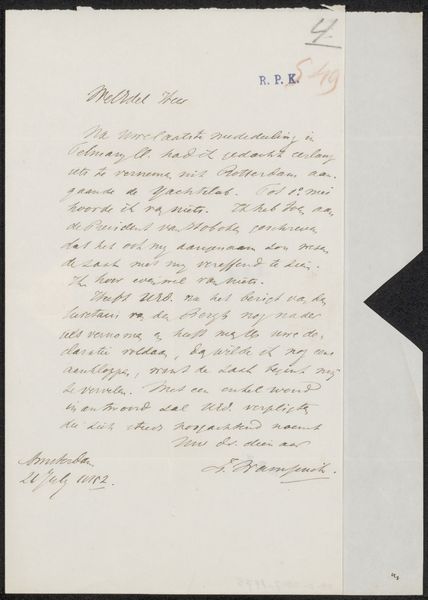 4.
R. P. K. 549
WelEdel Heer
Na Uwe laatste mededeeling in
Februarij ll. had ik gedacht eerlang
iets te vernemen uit Rotterdam aan-
gaande de Yachtclub. Tot 1º mei
hoorde ik van niets. Ik heb toen aan
de President van Hoboken geschreven
dat het ook mij aangenaam zou wezen
de zaak met mij vereffend te zien.
Ik hoor evenwel van niets.
Heeft UEd. na het berigt van den
Secretaris van den Bergh nog nader
iets vernomen en heeft men Uwe de-
claratie voldaan, dan wilde ik nog eens
aankloppen, want de zaak begint mij
te vervelen. Met een enkel woord
in antwoord zal UEd. verpligten
die zich steeds hoogachtend noemt
Uw dv. dienaar
Amsterdam
21 July 1852.